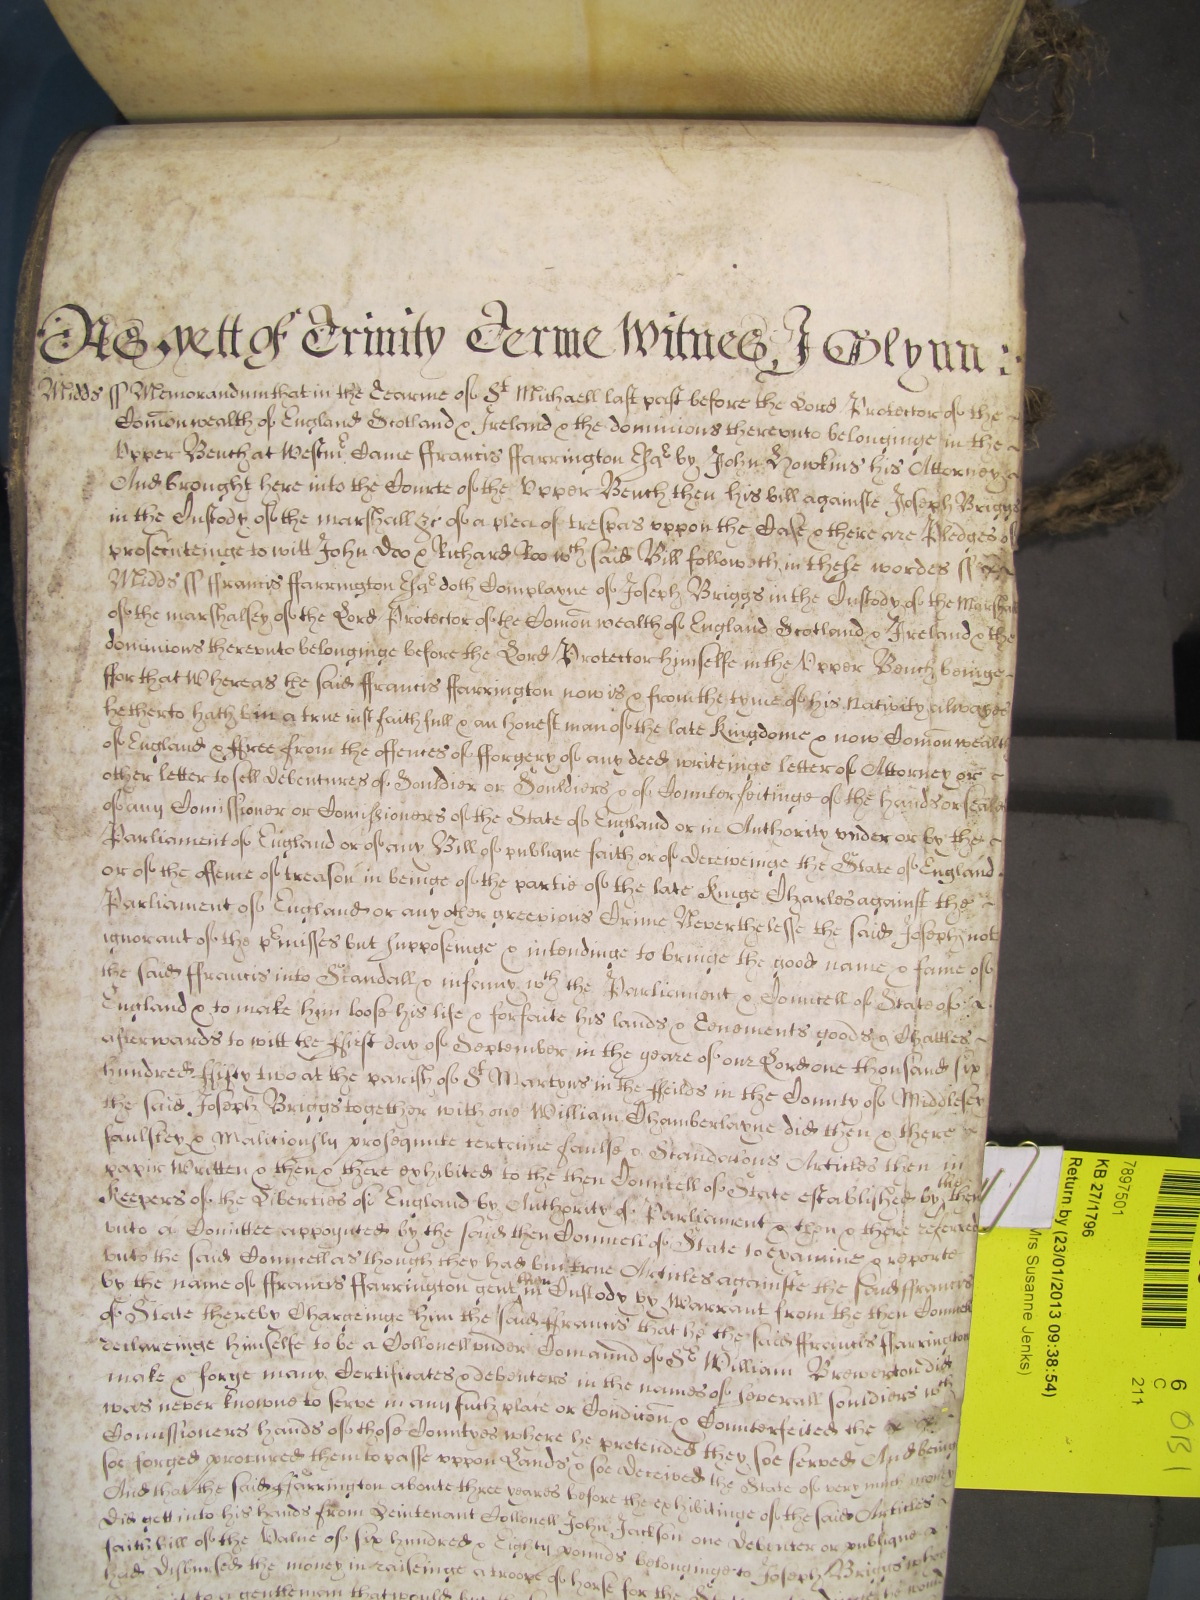 As yett of Trinity Terme Witnes J Glynn :
Midds ss Memorandum that in the Tearme of St Michaell last past before the Lord Protector of the
Comonwealth of England Scotland & Ireland & the dominions thereunto belonginge in the
Upper Bench at Westmr Came ffrancis ffarrington Esqr by John Howkins his Attorney
And brought here into the Courte of the Upper Bench then his bill againste Joseph Briggs
in the Custody of the marshall &c of a plea of trespas uppon the Case & there are Pledges of
prosecuteinge to witt John Doo & Richard Roo wch said Bill followeth in these wordes ss
Midds ss ffrancis ffarrington Esqr doth Complayne of Joseph Briggs in the Custody of the Marshall
of the marshalsey of the Lord Protector of the Comonwealth of England Scotland & Ireland & the
dominions thereunto belonginge before the Lord Protector himselfe in the Upper Bench beinge
ffor that Whereas the said ffrancis ffarrington now is & from the tyme of his Nativity alwayes
hetherto hath bin a true just faithfull & an honest man of the late Kingdome & now Comonwealth
of England & ffree from the offences of fforgery of any deed writeinge letter of Attorney or
other letter to sell debentures of Souldier or Souldiers & of Counterfeitinge of the hands or seales
of any Comissioner or Comissioners of the State of England or in Authority under or by the
Parliament of England or of any Bill of publique faith or of deceiveinge the State of England
or of the offence of treason in beinge of the partie of the late Kinge Charles against the
Parliament of England or any other greevious Crime Neverthelesse the said Joseph not
ignorant of the pmisses but supposeinge & intendinge to bringe the good name & fame of
the said ffrancis into Scandall & infamy wth the Parliament & Councell of State of
England & to make him loose his life & forfaite his lands & Tenements goods & Chattles
afterwards to witt the ffirst day of September in the yeare of our Lord one thousand six
hundred ffifty two at the parish of St Martyns in the ffeilds in the County of Middlesex
the said Joseph Briggs together with one William Chamberlayne did then & there
faulsley & Malitiously prosequute certeine faulse & Scandalous Articles then in
papir Written & then & there exhibited to the then Councell of State established by the then
Keepers of the Liberties of England by Authority of Parliament & then & there refered
unto a Comittee appoynted by the said then Councell of State to examine & reporte
unto the said Councell as though they had bin true Articles againste the said ffrancis
by the name of ffrancis ffarrington gent then in Custody by Warrant from the then Councell
of State thereby Chargeinge him the said ffrancis that he the said ffrancis ffarrington
declareinge himselfe to be a Collonell under Comaund of Sr William Brewerton did
make & forge many Certificates & debenters in the names of severall souldiers wch
was never knowne to serve in any such place or Condicon & Counterfeited the
Comissioners hands of those Countyes where he pretended they soe served And being
soe forged procured them to passe uppon Lands & soe deceived the State of very much money
And that the said ffarrington aboute three yeares before the exhibitinge of the said Articles
did gett into his hands from Leiutenant Collonell John Jackson one debenter or publique
faith bill of the Value of six hundred & Eighty pounds belonginge to Joseph Briggs who
had disbursed the money in raiseinge a troope of horse for the
to a gentleman that would
7897501
KB 27/1796
Return by (23/01/2013 09:38:54)
Mrs Susanne Jenks)
6
C
211